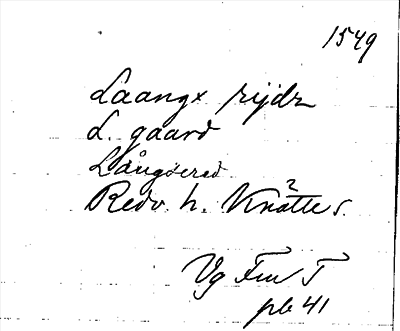 1549
Laangx rijdz
L. gaard
Långöered
Redv. h. Knätte s.
Vg Fm T
pb 41